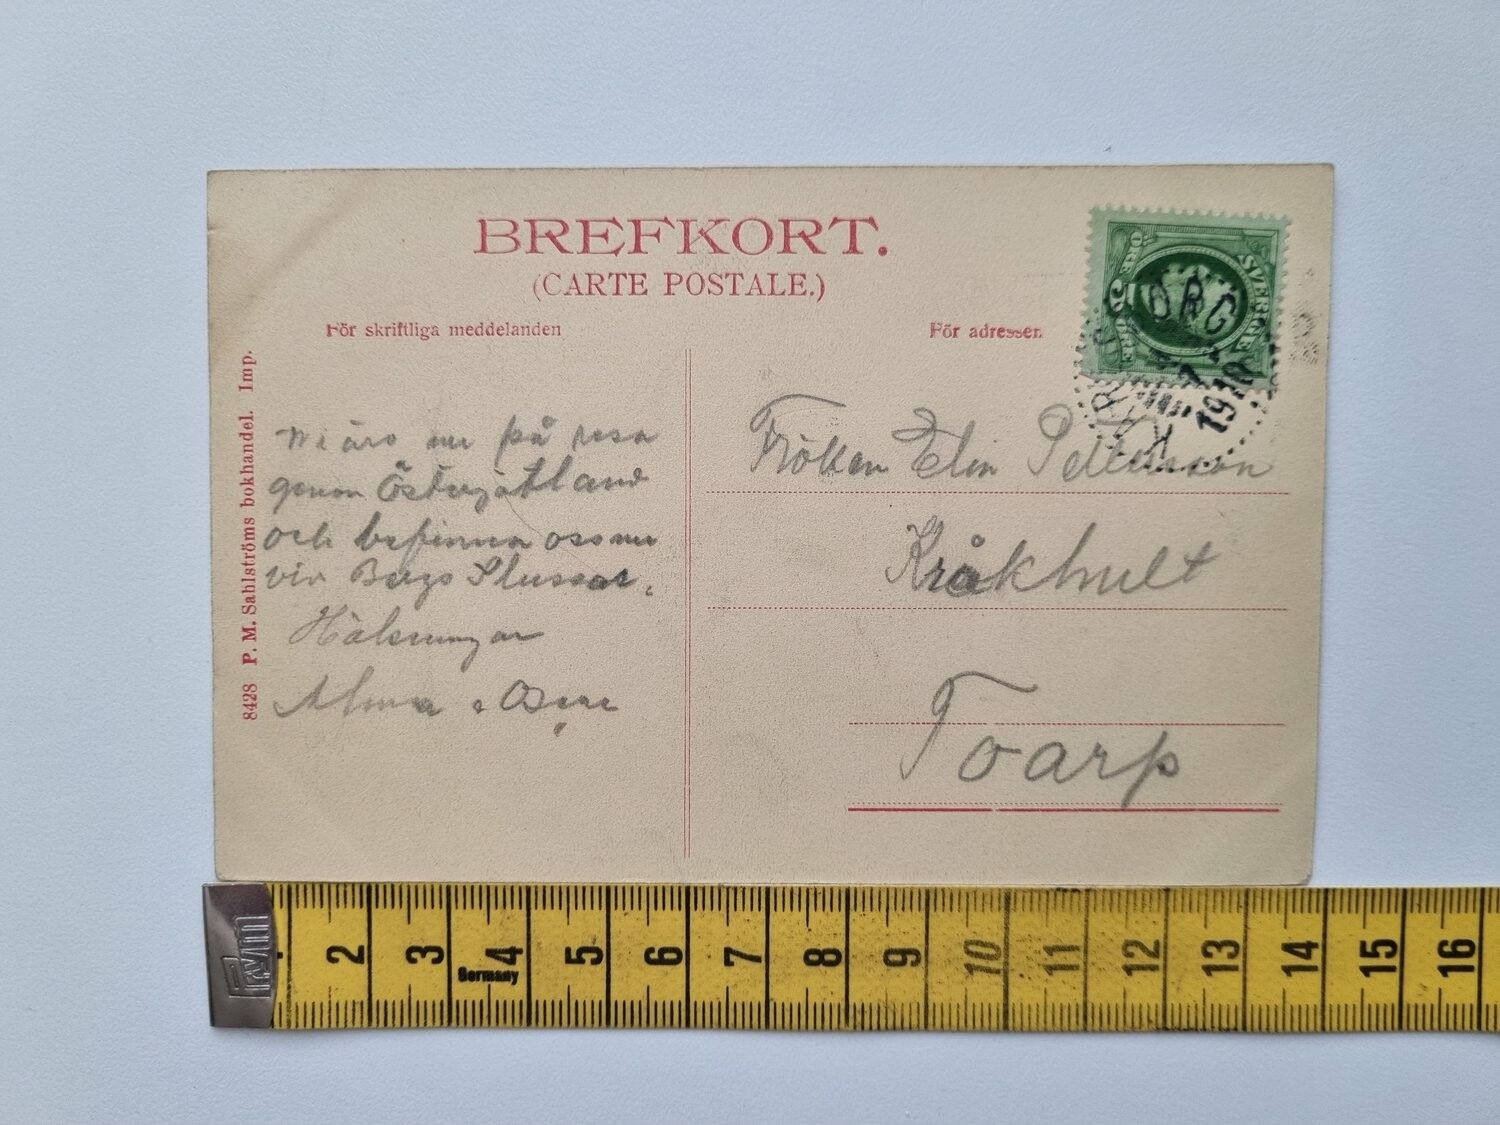 BREFKORT.
(CARTE POSTALE.)
För skriftliga meddelanden
För adressen
SVERIGE
5
ÖRE
ÖRE
KARLSBORG
1910
8428 P. M. Sahlströms bokhandel. Imp.
Vi äro nu på resa
genom Östergötland
och befinna oss nu
vid Bergs Slussar.
Hälsningar
Alma o Oscar
Fröken Elin Pettersson
Kråkhult
Toarp
Prym
2 3 4 5 6 7 8 9 10 11 12 13 14 15 16
Germany